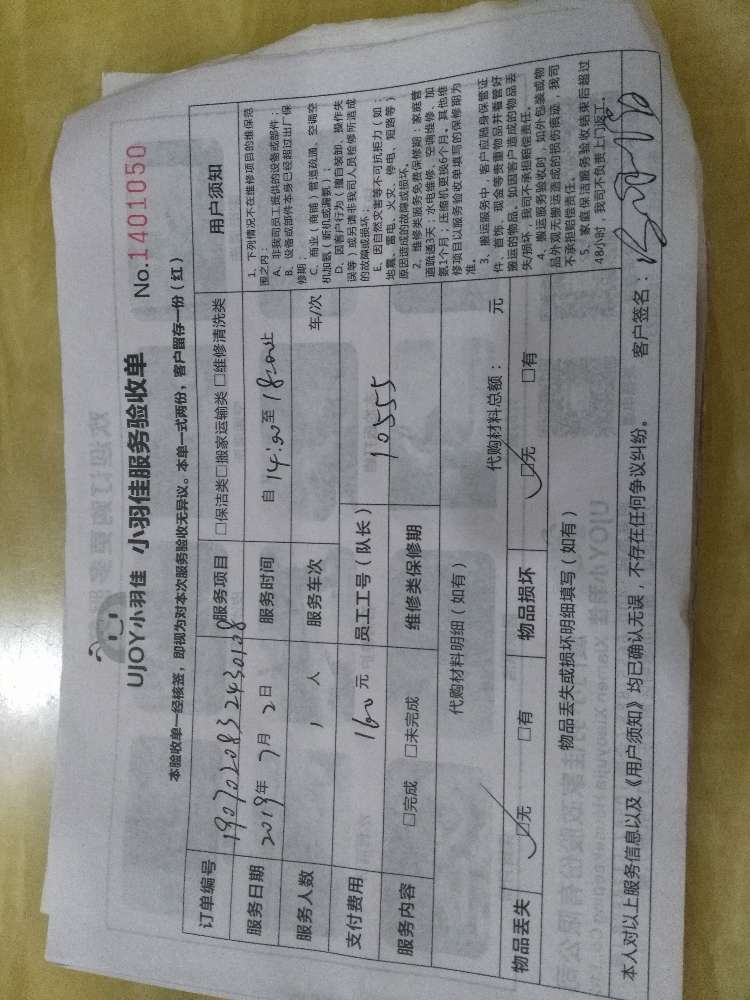 UJOY小羽佳 小羽佳服务验收单 No.1401050
本验收单一经核签，即视为对本次服务验收无异议。本单一式两份，客户留存一份（红）
订单编号 19070208324430108 服务项目 □保洁类□搬家运输类□维修清洗类
服务日期 2019年7月2日 服务时间 自14:00至18:00止
服务人数 1人 服务车次 车/次
支付费用 160元 员工工号（队长） 10555
服务内容 □完成 □未完成 维修类保修期
代购材料明细（如有） 代购材料总额： 元
物品丢失 ☑无 □有 物品损坏 ☑无 □有
物品丢失或损坏明细填写（如有）
用户须知
1、下列情况不在维修项目的维保范
围之内：
A、非我司员工提供的设备或部件；
B、设备或部件本身已经超过出厂保
修期；
C、商业（商铺）管道疏通、空调空
机加氨（新机或漏氨）；
D、因客户行为（擅自装卸、操作失
误等）或另请非我司人员检修所造成
的故障或损坏；
E、因自然灾害等不可抗拒力（如：
地震、雷电、火灾、停电、短路等）
原因造成的故障或损坏。
2、维修类服务免费保修期：家庭管
道疏通3天；水电维修、空调维修、加
氨1个月；压缩机更换6个月。其他维
修项目以服务验收单填写的保修期为
准。
3、搬运服务中，客户应随身保管证
件、首饰、现金等贵重物品并看管好
搬运的物品，如因客户造成的物品丢
失/损坏，我司不承担赔偿责任。
4、搬运服务验收时，如外包装或物
品外观无搬运造成的损伤痕迹，我司
不承担赔偿责任。
5、家庭保洁服务验收结束后超过
48小时，我司不负责上门返工。
本人对以上服务信息以及《用户须知》均已确认无误，不存在任何争议纠纷。 客户签名：